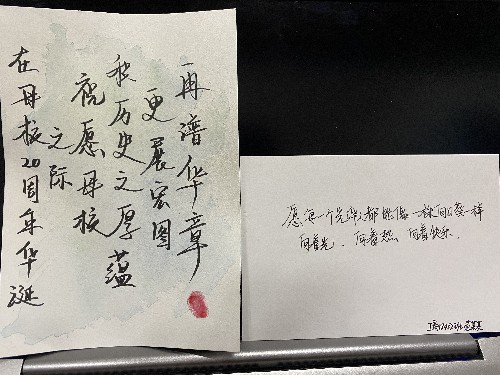 在母校20周年华诞
之际
祝愿母校
秉历史之厚蕴
更展宏图
再谱华章
愿每一个都能像一株向日葵一样
向着光、向着热、向着快乐.